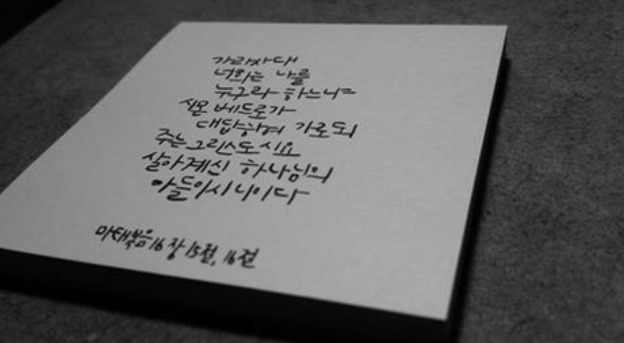 가라사대
너희는 나를
누구라 하느냐
시몬 베드로가
대답하여 가로되
주는 그리스도시요
살아계신 하나님의
아들이시니이다
마태복음 16장 15절, 16절